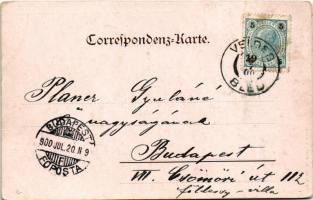 Correspondenz-Karte.
5 5
VELDES
BLED
Planer Gyuláné
nagyságának
BUDAPEST
900 JUL. 20. N 9
FŐPOSTA
Budapest
VII. Csömöri út 112